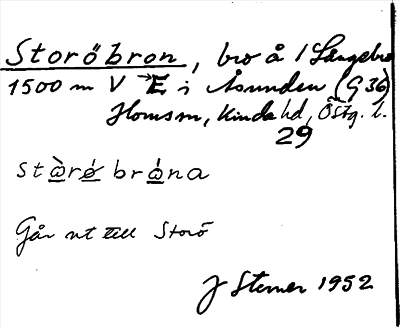 Storöbron, bro å / Långebro
1500 m V → E i Åsunden (G 36)
Horn sn, Kinda hd, Östg. l.
29
stòrǿ bróna
Går ut till Storö
J Sterner 1952